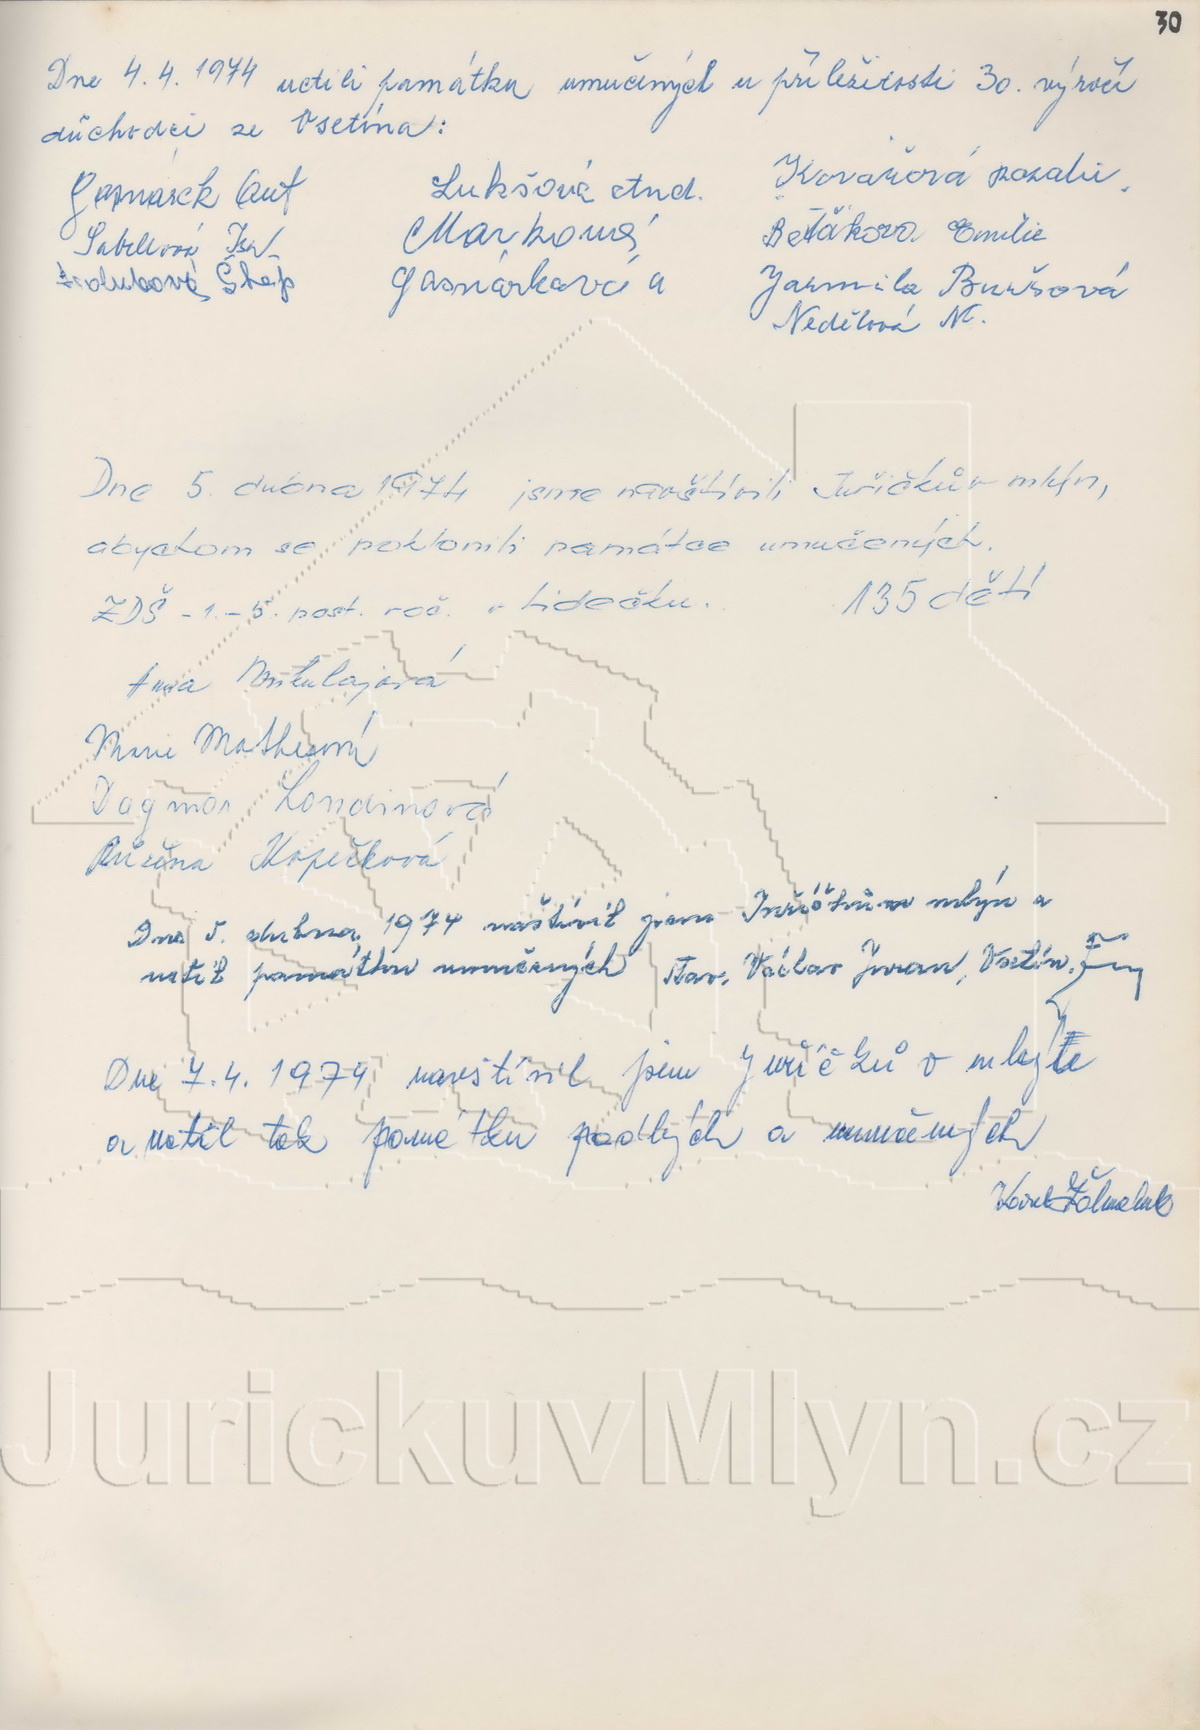 30
Dne 4.4.1974 uctili památku umučených u příležitosti 30. výročí
důchodci ze Vsetína:
Lukšová And. Kovářová
Marková Betáková Emilie
Holubová Štep Gasnárková a Jarmila Buršová
Nedělová M.
Dne 5. dubna 1974 jsme navštívili Juříčkův mlýn,
abychom se poklonili památce umučených.
ZDŠ - 1.-5. post. roč. v Lidečku. 135 dětí
Anna Mikulajová
Marie Matheová
Dagmar Londinová
Růžena Kopečková
Dne 5. dubna 1974 navštívil jsem Juříčkův mlýn a
uctil památku umučených Václav Juran, Vsetín.
Dne 7.4.1974 navštívil jsem Juříčkův mlejn
a uctil tak památku padlých a umučených
Karel
JurickuvMlyn.cz